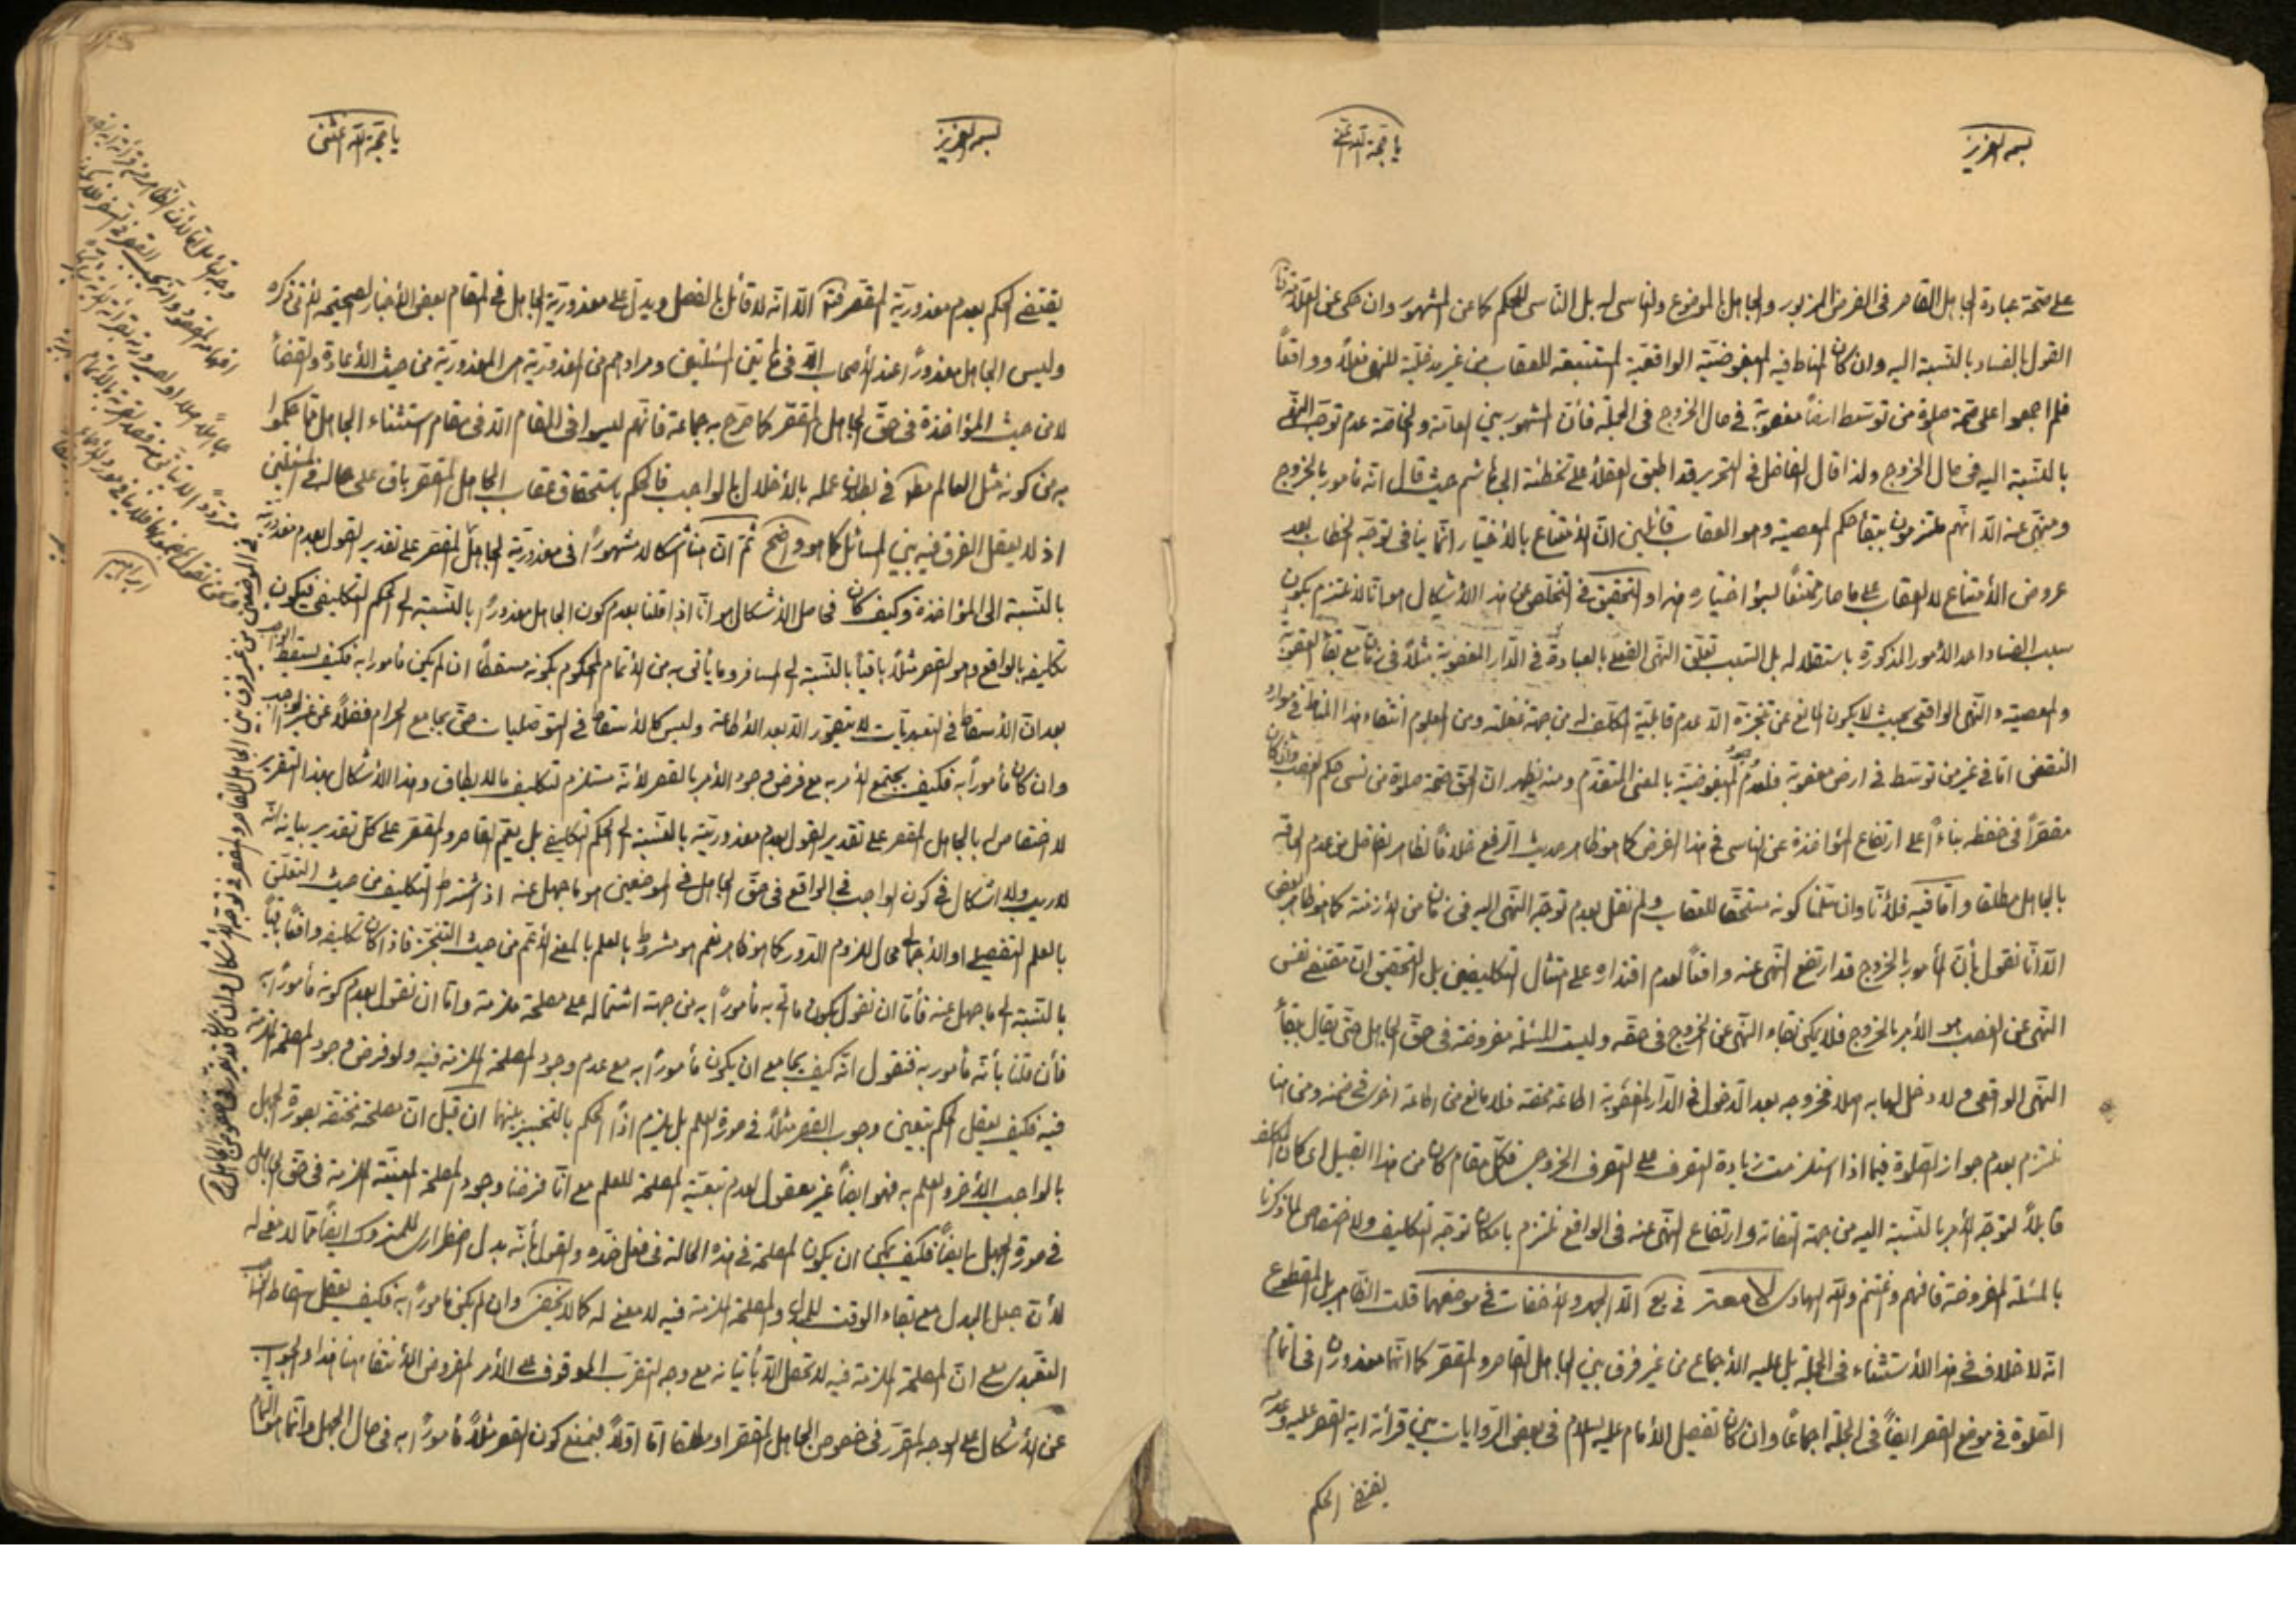 بسمه العزیز
یا حجة الله اغثنی
علی صحة عبادة الجاهل القاصر فی الفرض المزبور والجاهل بالموضوع والناسی له بل الناسی للحکم کما عن المشهور وان حکی عن العلامة
القول بالفساد بالنسبة الیه وان کان المناط فیه المبغوضیّة الواقعیّة المستتبعة للعقاب من غیر مدخلیّة للنهی فعلاً وواقعاً
فلم اجمعوا علی صحة صلوة من توسط ارضاً مغصوبة فی حال الخروج فی الجملة فأن المشهور بین العامّة والخاصّة عدم توجّه النهی
بالنسبة الیه فی حال الخروج ولذا قال الفاضل فی التحریر قد اطبق العقلاء علی تخطئة ابی هاشم حیث قال انّه مأمور بالخروج
ومنهیّ عنه الّا انّهم ملتزمون ببقاء حکم المعصیة وهو العقاب قائلین انّ الأمتناع بالأختیار انّما ینافی توجّه الخطاب بعد
عروض الأمتناع لا العقاب علی ما صار ممتنعاً لسوء اختیاره هذا والتحقیق فی التخلّص عن هذا الأشکال هو انّا لا نلتزم بکون
سبب الفساد احد الأمور المذکورة باستقلاله بل السبب تعلّق النهی الفعلی بالعبادة فی الدّار المغصوبة مثلاً فی زمان ما مع بقاء العقوبة
والمعصیة والنّهی الواقعی بحیث لا یکون المانع عن تنجّزه الّا عدم قابلیّة المکلّف له من جهة غفلته ومن المعلوم انتفاء هذا المناط فی موارد
النقض امّا فی غیر من توسّط فی ارض مغصوبة فلعدم المبغوضیّة بالمعنی المتقدّم ومنه یظهر انّ الحق صحة صلوة من نسی حکم الغصب وان کان
مقصّراً فی حفظه بناءاً علی ارتفاع المؤاخذة عن الناسی فی هذا الفرض کما هو ظاهر حدیث الرفع خلافاً لظاهر الفاضل من عدم الحاقه
بالجاهل مطلقا وامّا فیه فلأنّا وان سلّمنا کونه مستحقّا للعقاب ولم نقل بعدم توجّه النّهی الیه فی زمان من الأزمنة کما هو ظاهر البعض
الّا انّا نقول بأنّ المأمور بالخروج قد ارتفع النّهی عنه واقعاً لعدم اقتداره علی امتثال التکلیفین بل التحقیق انّ مقتضی نفس
النّهی عن الغصب هو الأمر بالخروج فلا یمکن بقاء النّهی عن الخروج فی حقّه ولیست المسئلة مفروضة فی حقّ الجاهل حتّی یقال ببقاء
النّهی الواقعی ولا دخل لها به اصلا فخروجه بعد الدّخول فی الدّار المغصوبة اطاعة محضة فلا مانع من اطاعة اخری فی ضمنه ومن هنا
نلتزم بعدم جواز الصلوة فیما اذا استلزمت زیادة التصرف علی التصرف الخروجی فکلّ مقام کان من هذا القبیل ای کان المکلف
قابلاً لتوجّه الأمر بالنّسبة الیه من جهة التفاته وارتفاع النّهی عنه فی الواقع نلتزم بامکان توجّه التکلیف ولا اختصاص لما ذکرنا
بالمسئلة المفروضة فافهم واغتنم والله الهادی قوله الّا الجهر والأخفات فی موضعهما قلت الظّاهر بل المقطوع
انّه لا خلاف فی هذا الأستثناء فی الجملة بل علیه الأجماع من غیر فرق بین الجاهل القاصر والمقصّر کما انّهما معذوران فی اتمام
الصّلوة فی موضع القصر ایضاً فی الجملة اجماعا وان کان تفصیل الأمام علیه السلام فی بعض الرّوایات بین قرأئة ایة القصر علیه وعدمه
یقتضی الحکم
بسمه العزیز
یا حجة الله اغثنی
یقتضی الحکم بعدم معذوریّة المقصّر الّا انّه لا قائل بالفصل ویدلّ علی معذوریّة الجاهل فی المقام بعض الأخبار الصحیحة
ولیس الجاهل معذوراً عند الأصحاب الّا فی هاتین المسئلتین ومرادهم من المعذوریّة هی المعذوریّة من حیث الأعادة والقضاء
لا من حیث المؤاخذة فی حقّ الجاهل المقصّر کما صرّح به جماعة فانّهم لیسوا فی المقام الّا فی مقام استثناء الجاهل ممّا حکموا
به من کونه مثل العالم فی بطلان عمله بالأخلال بالواجب فالحکم باستحقاق عقاب الجاهل المقصّر باق علی حاله فی المسئلتین
اذ لا یعقل الفرق فیه بین المسائل کما هو واضح ثمّ انّ هنا اشکالا مشهوراً فی معذوریّة الجاهل المقصّر علی تقدیر القول بعدم معذوریّته
بالنّسبة الی المؤاخذة وکیف کان فحاصل الأشکال هو انّا اذا قلنا بعدم کون الجاهل معذوراً بالنّسبة الی الحکم التکلیفی فیکون
تکلیفه بالواقع وهو القصر مثلاً باقیاً بالنّسبة الی المسافر وما یأتی به من الأتمام المحکوم بکونه مسقطاً ان لم یکن مأمورا به فکیف یسقط الواجب
بعد انّ الأسقاط فی التعبدیّات لا یتصوّر الّا بعد الأطاعة ولیس کالأسقاط فی التوصّلیات حتّی یجامع الحرام فضلاً عن غیر الواجب
وان کان مأموراً به فکیف یجتمع الأمر به مع فرض وجود الأمر بالقصر لأنّه مستلزم لتکلیف ما لا یطاق وهذا الأشکال بهذا التقریر
لا اختصاص له بالجاهل المقصّر علی تقدیر القول بعدم معذوریّته بالنّسبة الی الحکم التکلیفی بل یعمّ القاصر والمقصّر علی کلّ تقدیر بیانه انّه
لا ریب ولا اشکال فی کون الواجب فی الواقع فی حقّ الجاهل فی الموضعین هو ما جهل عنه اذ اشتراط التکلیف من حیث التعلّق
بالعلم التفصیلی او الأجمالی محال للزوم الدّور کما هو ظاهر نعم هو مشروط بالعلم بالمعنی الأعم من حیث التنجّز فاذا کان تکلیفه واقعاً باقیاً
بالنّسبة الی ما جهل عنه فأمّا ان نقول بکون ما أتی به مأموراً به من جهة اشتماله علی مصلحة ملزمة وامّا ان نقول بعدم کونه مأموراً به
فأن قلنا بأنّه مأمور به فنقول انّه کیف یجامع ان یکون مأموراً به مع عدم وجود المصلحة الملزمة فیه ولو فرض وجود المصلحة الملزمة
فیه فکیف یعقل الحکم بتعیین وجوب القصر مثلاً فی صورة العلم بل یلزم اذاً الحکم بالتخییر بینهما ان قیل انّ مصلحته مختصّة بصورة الجهل
بالواجب الأخر والعلم به فهو ایضاً غیر معقول لعدم تبعیّة المصلحة للعلم مع انّا فرضنا وجود المصلحة المعیّنة الملزمة فی حقّ الجاهل
فی صورة الجهل ایضاً فکیف یمکن ان یکون المصلحة فی هذه الحالة فی فعل ضدّه والقول بأنّه بدل اضطراری للمتروک ایضاً ممّا لا معنی له
لأنّ جعل البدل مع بقاء الوقت للمبدل والمصلحة الملزمة فیه لا معنی له کما لا یخفی وان لم یکن مأموراً به فکیف یعقل اسقاط الواجب
التعبدی مع انّ المصلحة الملزمة فیه لا تحصل الّا بأتیانه مع وجه التقرّب الموقوف علی الأمر المفروض الأنتفاء هنا هذا والجواب
عن الأشکال علی الوجه المقرّر فی خصوص الجاهل المقصّر او مطلقا امّا اوّلاً فبمنع کون القصر مثلاً مأموراً به فی حال الجهل وانّما هو التمام